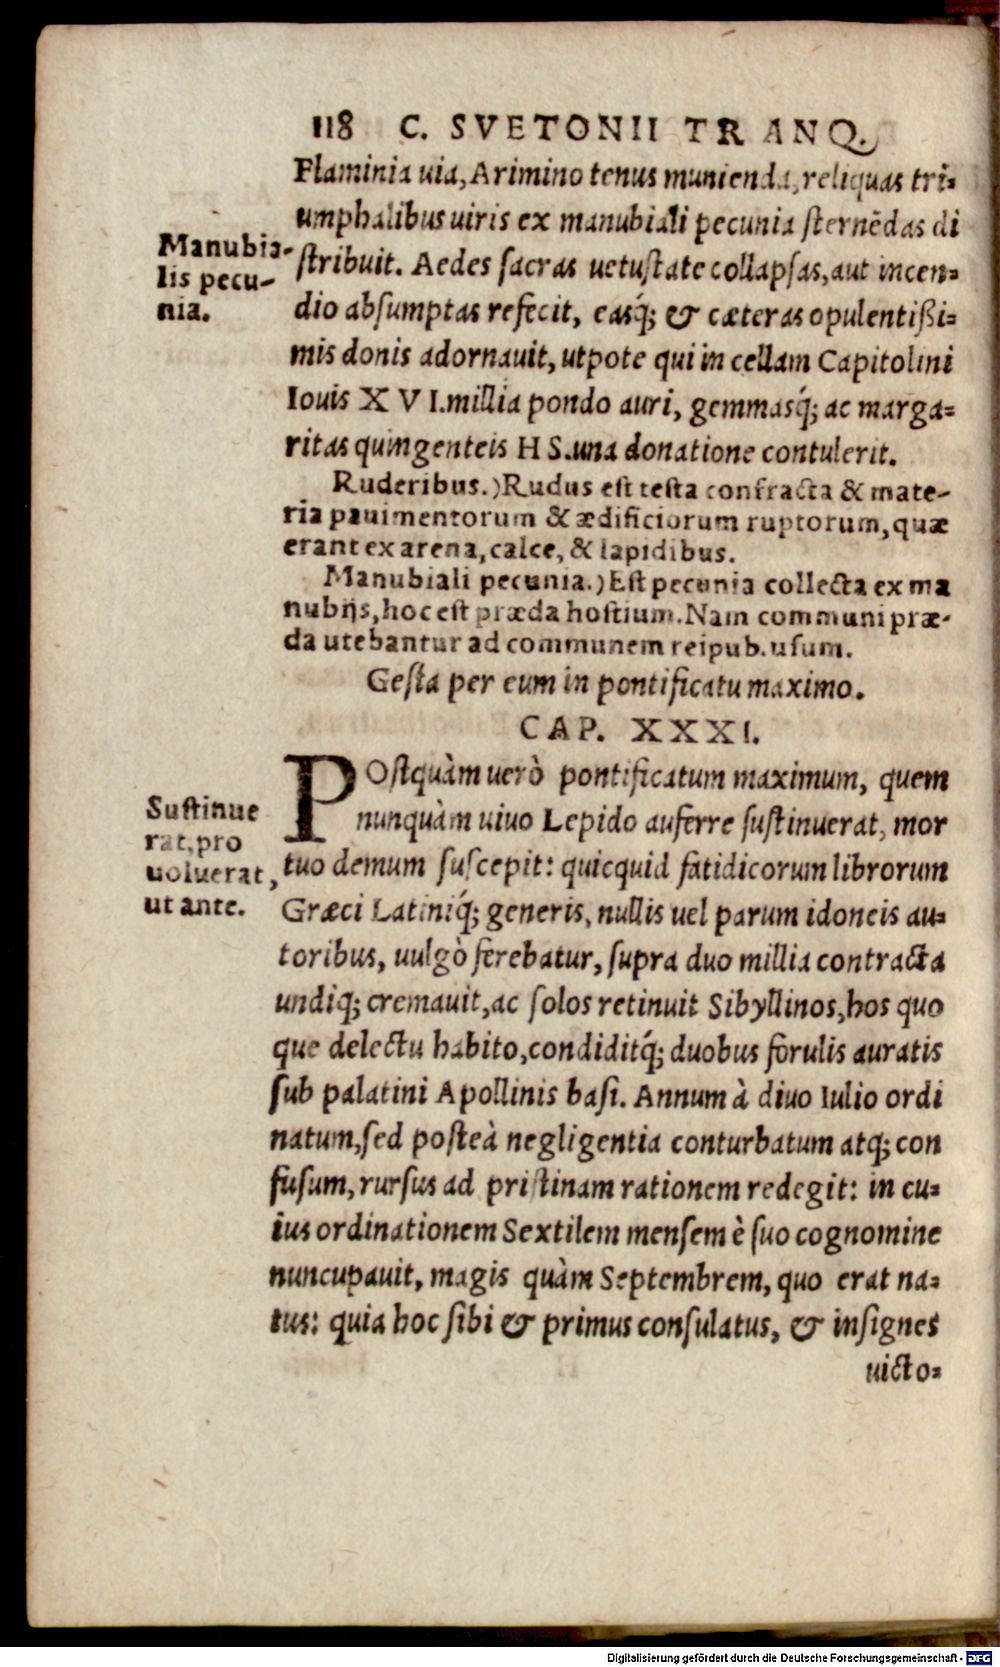 118 C. SVETONII TRANQ.
Flaminia uia, Arimino tenus munienda, reliquas tri-
umphalibus uiris ex manubiali pecunia sternēdas di
stribuit. Aedes sacras uetustate collapsas, aut incen-
dio absumptas refecit, easq́; & cæteras opulentißi-
mis donis adornauit, utpote qui in cellam Capitolini
Iouis X V I. millia pondo auri, gemmasq́; ac marga-
ritas quingenteis H S. una donatione contulerit.
Manubia-
lis pecu-
nia.
Ruderibus.) Rudus est testa confracta & mate-
ria pauimentorum & ædificiorum ruptorum, quæ
erant ex arena, calce, & lapidibus.
Manubiali pecunia.) Est pecunia collecta ex ma
nubijs, hoc est præda hostium. Nam communi præ-
da utebantur ad communem reipub. usum.
Gesta per eum in pontificatu maximo.
CAP. XXXI.
POstquàm uerò pontificatum maximum, quem
nunquàm uiuo Lepido auferre sustinuerat, mor
tuo demum suscepit: quicquid fatidicorum librorum
Græci Latiniq́; generis, nullis uel parum idoneis au-
toribus, uulgò ferebatur, supra duo millia contracta
undiq; cremauit, ac solos retinuit Sibyllinos, hos quo
que delectu habito, condiditq́; duobus forulis auratis
sub palatini Apollinis basi. Annum à diuo Iulio ordi
natum, sed posteà negligentia conturbatum atq; con
fusum, rursus ad pristinam rationem redegit: in cu-
ius ordinationem Sextilem mensem è suo cognomine
nuncupauit, magis quàm Septembrem, quo erat na-
tus: quia hoc sibi & primus consulatus, & insignes
uicto-
Sustinue
rat, pro
uoluerat,
ut ante.
Digitalisierung gefördert durch die Deutsche Forschungsgemeinschaft - DFG